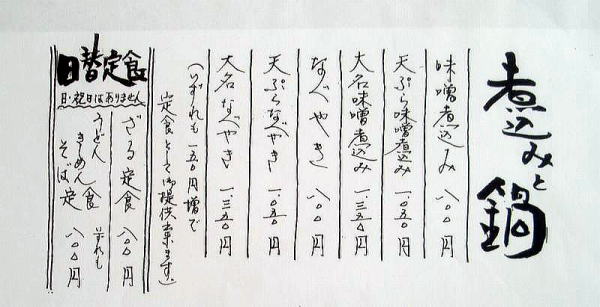 煮込みと鍋
味噌煮込み 八〇〇円
天ぷら味噌煮込み 一、〇五〇円
大名味噌煮込み 一、三五〇円
なべやき 八〇〇円
天ぷらなべやき 一、〇五〇円
大名なべやき 一、三五〇円
(いずれも一五〇円増で
定食として御提供出来ます。)
日替定食
日・祝日はありません
ざる定食 八〇〇円
うどん
きしめん 定食 いずれも
そば 八〇〇円